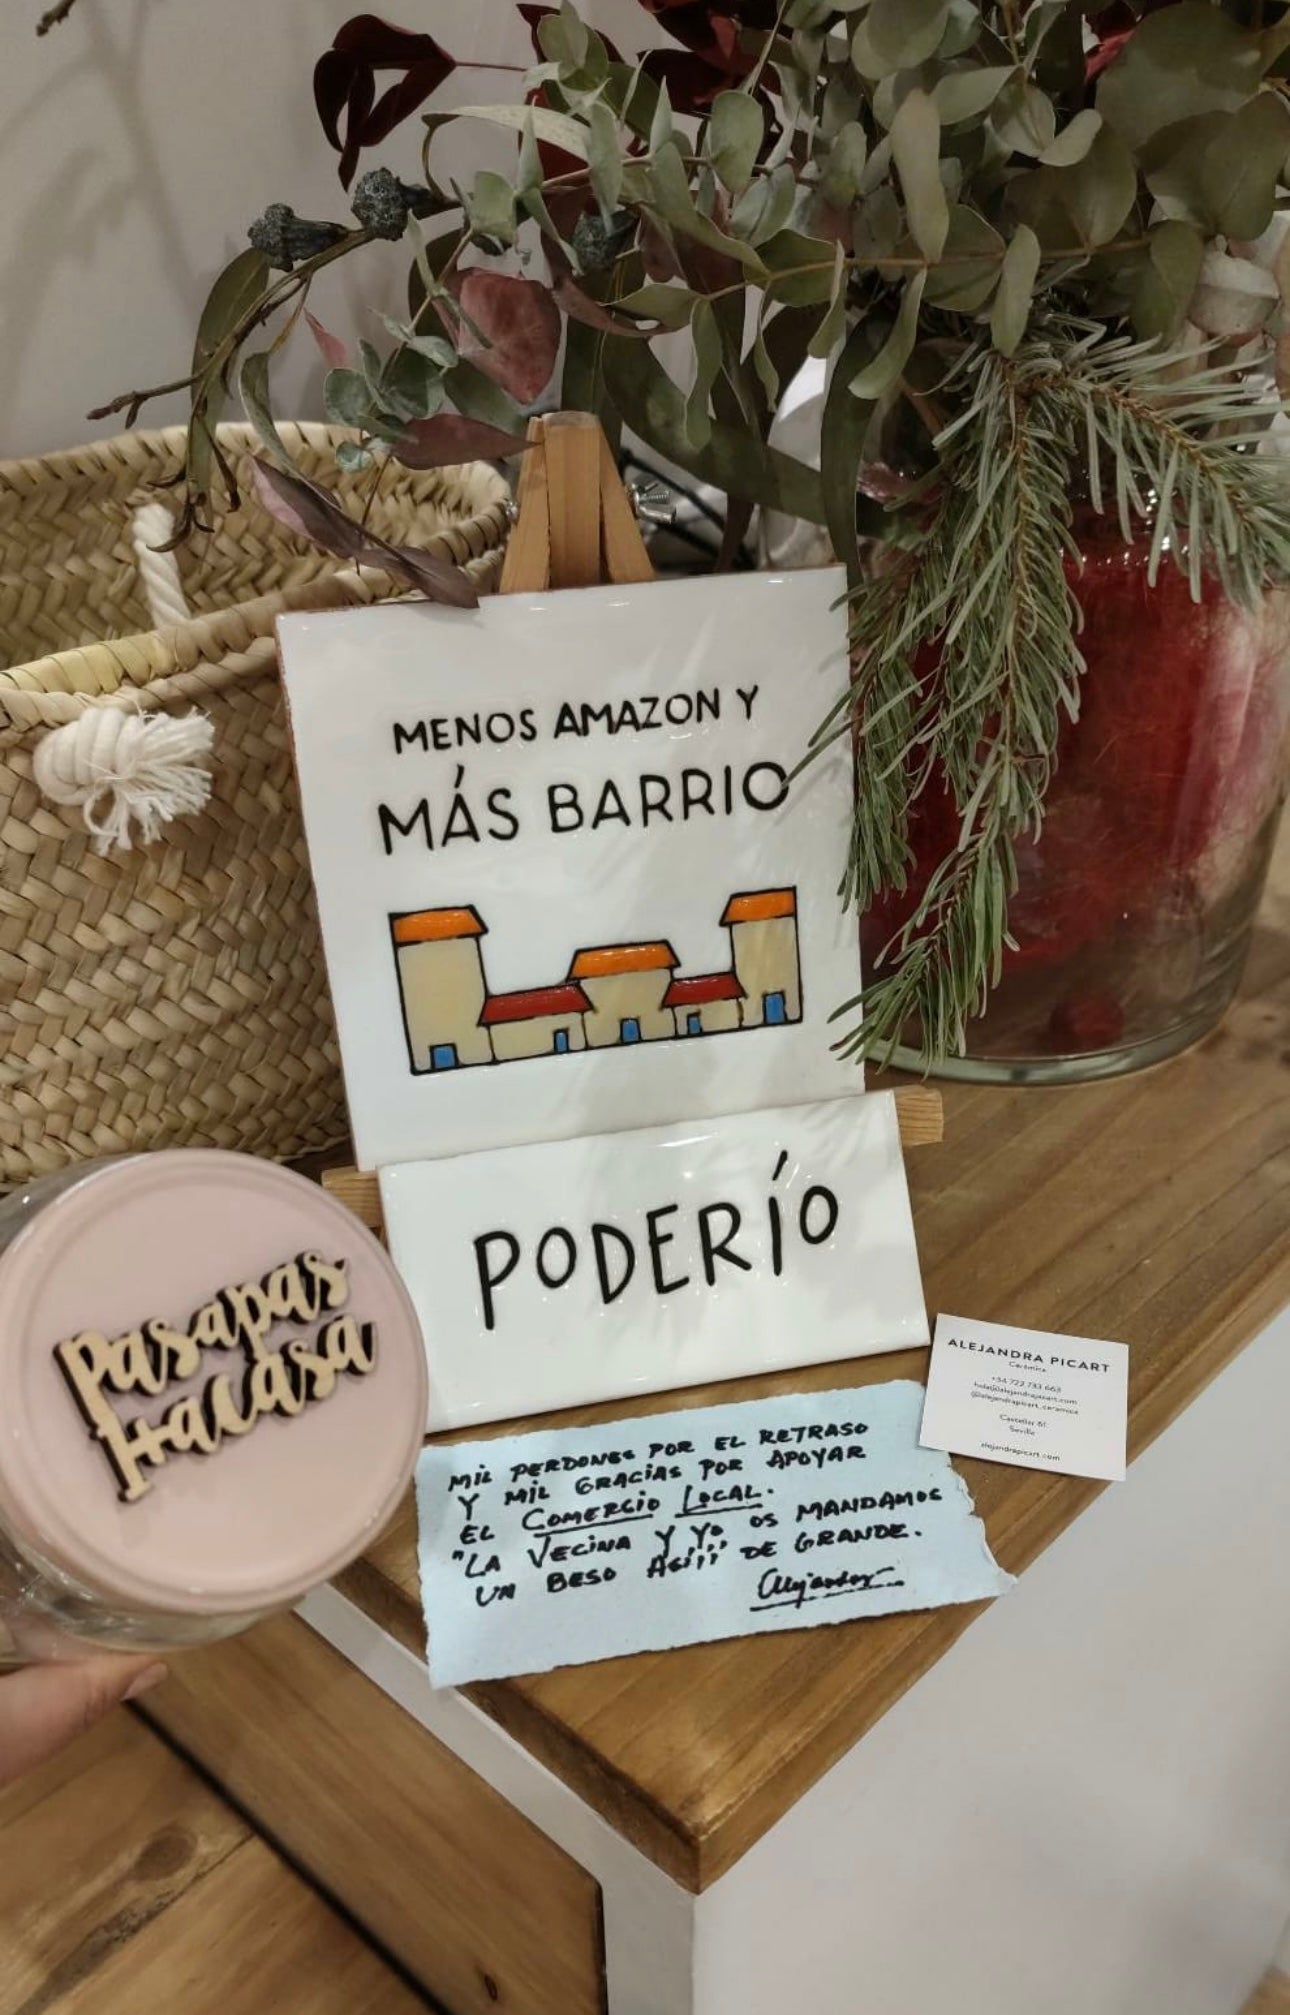 MENOS AMAZON Y
MÁS BARRIO
PODERÍO
Pasapas
Hacasa
ALEJANDRA PICART
Cerámica
+34 722 733 663
hola@alejandrapicart.com
@alejandrapicart_ceramica
Castellar 61
Sevilla
alejandrapicart.com
MIL PERDONES POR EL RETRASO
Y MIL GRACIAS POR APOYAR
EL COMERCIO LOCAL.
"LA VECINA Y YO OS MANDAMOS
UN BESO ASÍ¡¡¡ DE GRANDE.
Alejandra